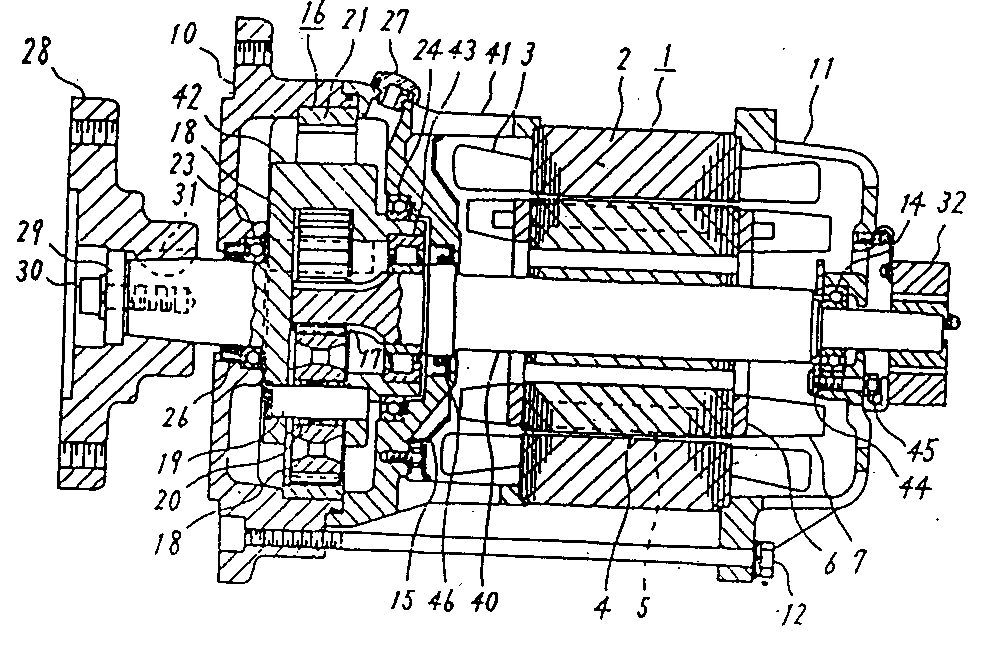 10
16
21
27
24
43
41
3
2
1
11
28
42
18
23
31
29
30
14
32
17
26
19
20
18
15
46
40
4
5
6
7
12
45
44